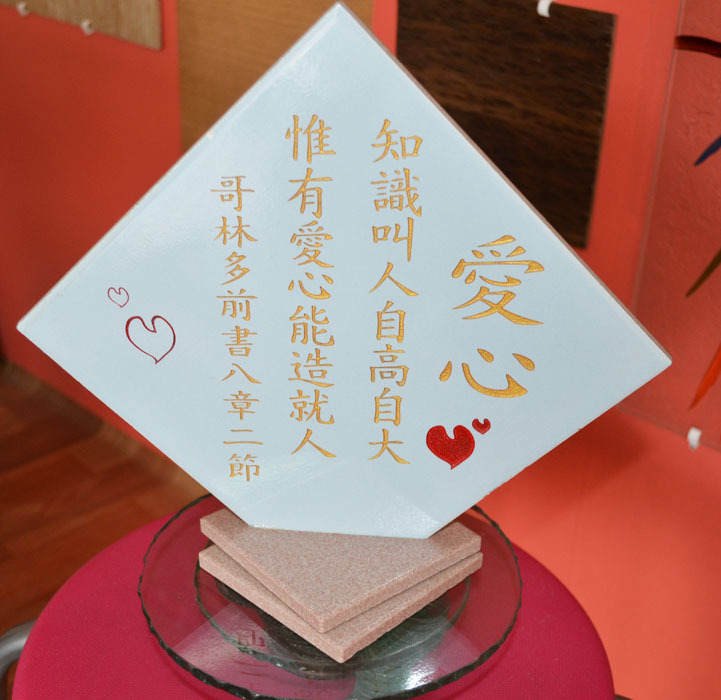 愛心
知識叫人自高自大
惟有愛心能造就人
哥林多前書八章二節